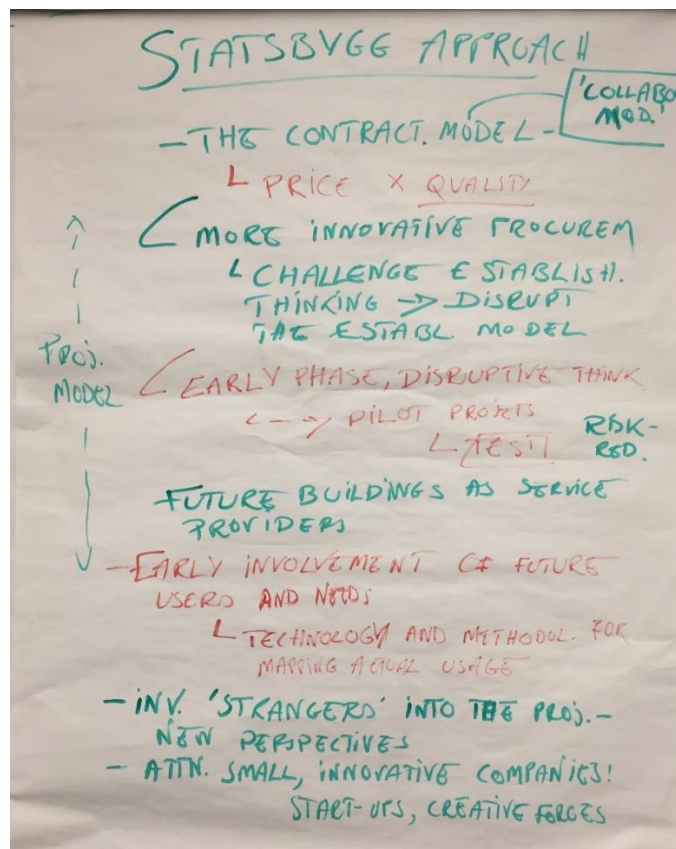 STATSBYGG APPROACH
'COLLABO
MOD.'
- THE CONTRACT. MODEL -
PRICE X QUALITY
MORE INNOVATIVE PROCUREM
CHALLENGE ESTABLISH.
THINKING -> DISRUPT
THE ESTABL. MODEL
PROJ.
MODEL
EARLY PHASE, DISRUPTIVE THINK
<--> PILOT PROJETS
TEST!
RISK-
RED.
FUTURE BUILDINGS AS SERVICE
PROVIDERS
- EARLY INVOLVEMENT OF FUTURE
USERS AND NEEDS
TECHNOLOGY AND METHODOL. FOR
MAPPING ACTUAL USAGE
- INV. 'STRANGERS' INTO THE PROJ. -
NEW PERSPECTIVES
- ATTN. SMALL, INNOVATIVE COMPANIES!
START-UPS, CREATIVE FORCES